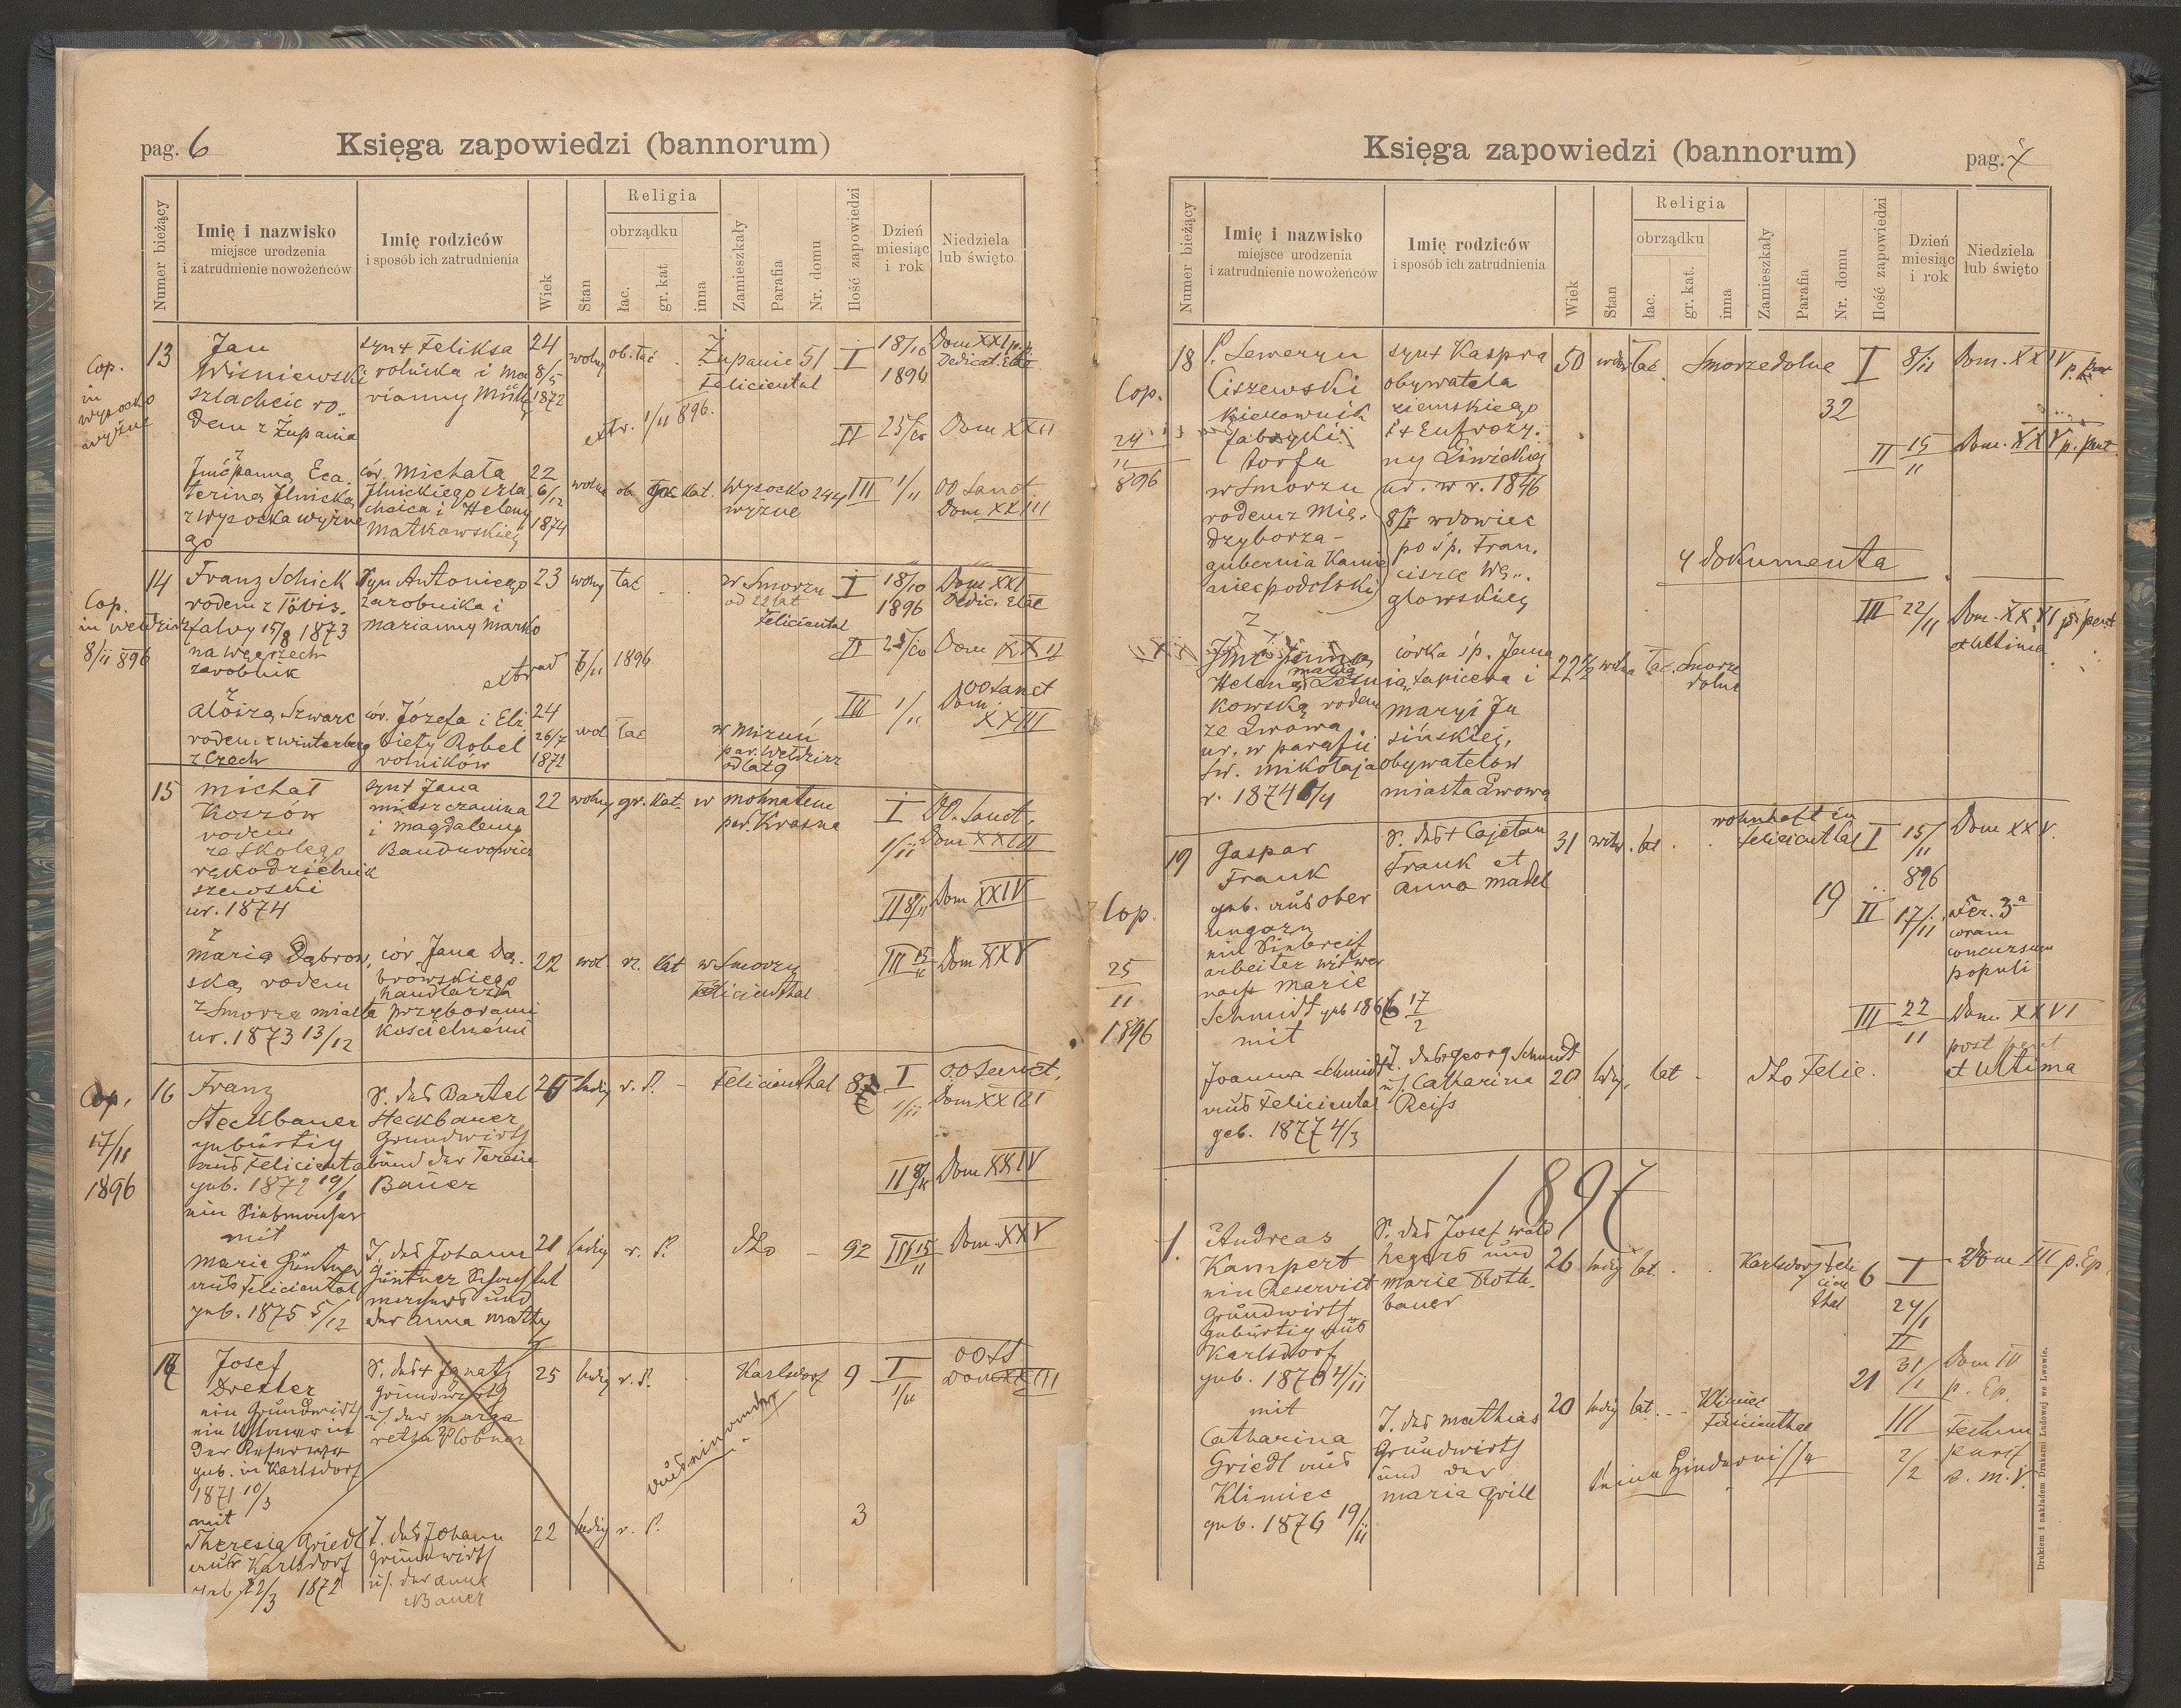 pag. 6
Księga zapowiedzi (bannorum)
Numer bieżący
Imię i nazwisko
miejsce urodzenia
i zatrudnienie nowożeńców
Imię rodziców
i sposób ich zatrudnienia
Wiek
Stan
Religia
obrządku
łac.
gr. kat
inna
Zamieszkały
Parafia
Nr. domu
Ilość zapowiedzi
Dzień
miesiąc
i rok
Niedziela
lub święto
Cop.
in
wysocko
wyżne
13
Jan
Wiśniewski
szlachcic ro
dem z Żupania
syn + Feliksa
rolnika i Ma
rianny
24
8/5
1872
wolny
ob. łać
Żupanie 51
Feliciental
I
18/10
1896
Dom XXI p.p.
Dedicat. Eccl
extr. 1/11 896.
II
25/10
Dom XXII
z
Jmćpanną Eca
teriną Ilnicką
z Wysocka wyżne
go
cór. Michała
Ilnickiego szla
chcica i Heleny
Matkowskiej
22
6/12
1874
wolna
ob. gr. kat.
Wysocko 244
wyżne
III
1/11
OO Sanct
Dom XXIII
Cop.
in Wełdzirz
8/11 896
14
Franz Schick
rodem z Tövis.
falvy 15/8 1873
na Węgrzech
zarobnik
Syn Antoniego
zarobnika i
marianny Marko
23
wolny
łać
w Smorzu
od 22 lat
Feliciental
I
18/10
1896
Dom XXI
Dedic. Eccl
II
25/10
Dom XXII
extrad 7/11 1896
z
Aloizą Szwarc
rodem z Winterberg
z Czech
cór. Józefa i Elż
biety Robel
rolników
24
26/7
1872
wol
łać
w Mizun
par. Wełdzirz
od lat 9
III
1/11
OO Sanct
Dom
XXIII
15
Michał
Koszów
rodem
ze Skolego
rękodzielnik
szewski
ur. 1874
syn + Jana
mieszczanina
i Magdaleny
Bandurowicz
22
wolny
gr. kat.
w Mohnatem
par. Krasne
I
1/11
OO. Sanct.
Dom XXIII
II 8/11
Dom XXIV
z
Maria Dąbrow
ską rodem
z Smorza miasta
ur. 1873 13/12
cór. Jana Dą
browskiego
handlarza
przyborami
kościelnémi
22
wol
rz. kat
w Smorzu
Felicienthal
III 15/11
Dom XXV
Cop.
17/11
1896
16
Franz
Steckbauer
gebürtig
aus Felicienthal
geb. 1872 19/1
mit
S. des Bartel
Steckbauer
Grundwirth
und der Teresie
Bauer
ledig
r. k.
Felicienthal
I
1/11
OO Sanct.
Dom XXIII
II 8/11
Dom XXIV
Maria Güntner
aus Felicienthal
geb. 1875 5/12
T. des Johann
Güntner
und
der Anna Mathy
21
ledig
r. k.
dto
92
III 15/11
Dom. XXV
17
Josef
Drexler
ein Grundwirth
der Reserve
geb. in Karlsdorf
1871 10/3
mit
S. des + Ignatz
Grundwirth
u. der Marga
retha Plobner
25
ledig
r. k.
Karlsdorf
9
I
1/11
OO SS
Dom XXIII
Theresia Griedl
aus Karlsdorf
geb. 22/3 1872
T. des Johann
Grundwirth
u. der Anna
Bauer
22
ledig
r. k.
3
Księga zapowiedzi (bannorum)
pag. 7
Numer bieżący
Imię i nazwisko
miejsce urodzenia
i zatrudnienie nowożeńców
Imię rodziców
i sposób ich zatrudnienia
Wiek
Stan
Religia
obrządku
łac.
gr. kat.
inna
Zamieszkały
Parafia
Nr. domu
Ilość zapowiedzi
Dzień
miesiąc
i rok
Niedziela
lub święto
Cop.
24
11
896
18
P. Seweryn
Ciszewski
kierownik
fabryki
torfu
w Smorzu
rodem z Mię
dzyborza
gubernia Kamie
niec podolski
syn + Kaspra
obywatela
ziemskiego
i + Eufrozy
ny Liwickiej
ur. w r. 1846
8/II wdowiec
po śp. Fran
ciszce Wę
głowskiej
50
wdow
łać
Smorze dolne
32
I
8/11
Dom. XXIV
p. pent
II
15
11
Dom. XXV p. pent.
4 dokumenta
III
22/11
Dom. XXVI p. pent
et ultima
z
Jmć panną
Heleną Marią Leśnia
kowską rodem
ze Lwowa
ur. w parafii
św. Mikołaja
r. 1874 6/4
córka śp. Jana
tapicera i
Maryi Ja
sińskiej,
obywatelów
miasta Lwowa
22 1/2
wolna
łać.
Smorze
dolne
Cop.
25
11
1896
19
Gaspar
Frank
geb. aus Ober
Ungarn
arbeiter witwer
nach Marie
Schmidt geb 1866 17/2
mit
S. des + Cajetan
Frank et
Anna Madel
31
witw.
lat.
wohnhaft in
Felicienthal
19
I
15/11
896
Dom XXV.
II
17/11
Fer. 3a
coram
concursum
populi
III
22
11
Dom. XXVI
post pent
et ultima
Joanna Schmidt
aus Felicienthal
geb. 1877 4/3
T. des Georg Schmidt
u. Catharina
Reiss
20
ledig.
lat
dto Felic.
1897
1.
Andreas
Kampert
ein Reservist
Grundwirth
gebürtig aus
Karlsdorf
geb. 1870 4/11
mit
S. des Josef Wald
hegers und
Marie Roth
bauer
26
ledig
lat.
Karlsdorf Feli
cien
thal
6
I
24/1
Dom III p. Ep.
II
31/1
Dom IV
p. Ep.
Catharina
Griedl aus
Klimiec
geb. 1876 19/11
T. des Mathias
Grundwirth
und der
Maria Grill
20
ledig
lat.
Klimiec
Felicienthal
21
III
2/2
Festum
purif
B. M. V.
Keine Hindernisse
Drukiem i nakładem Drukarni Ludowej we Lwowie.